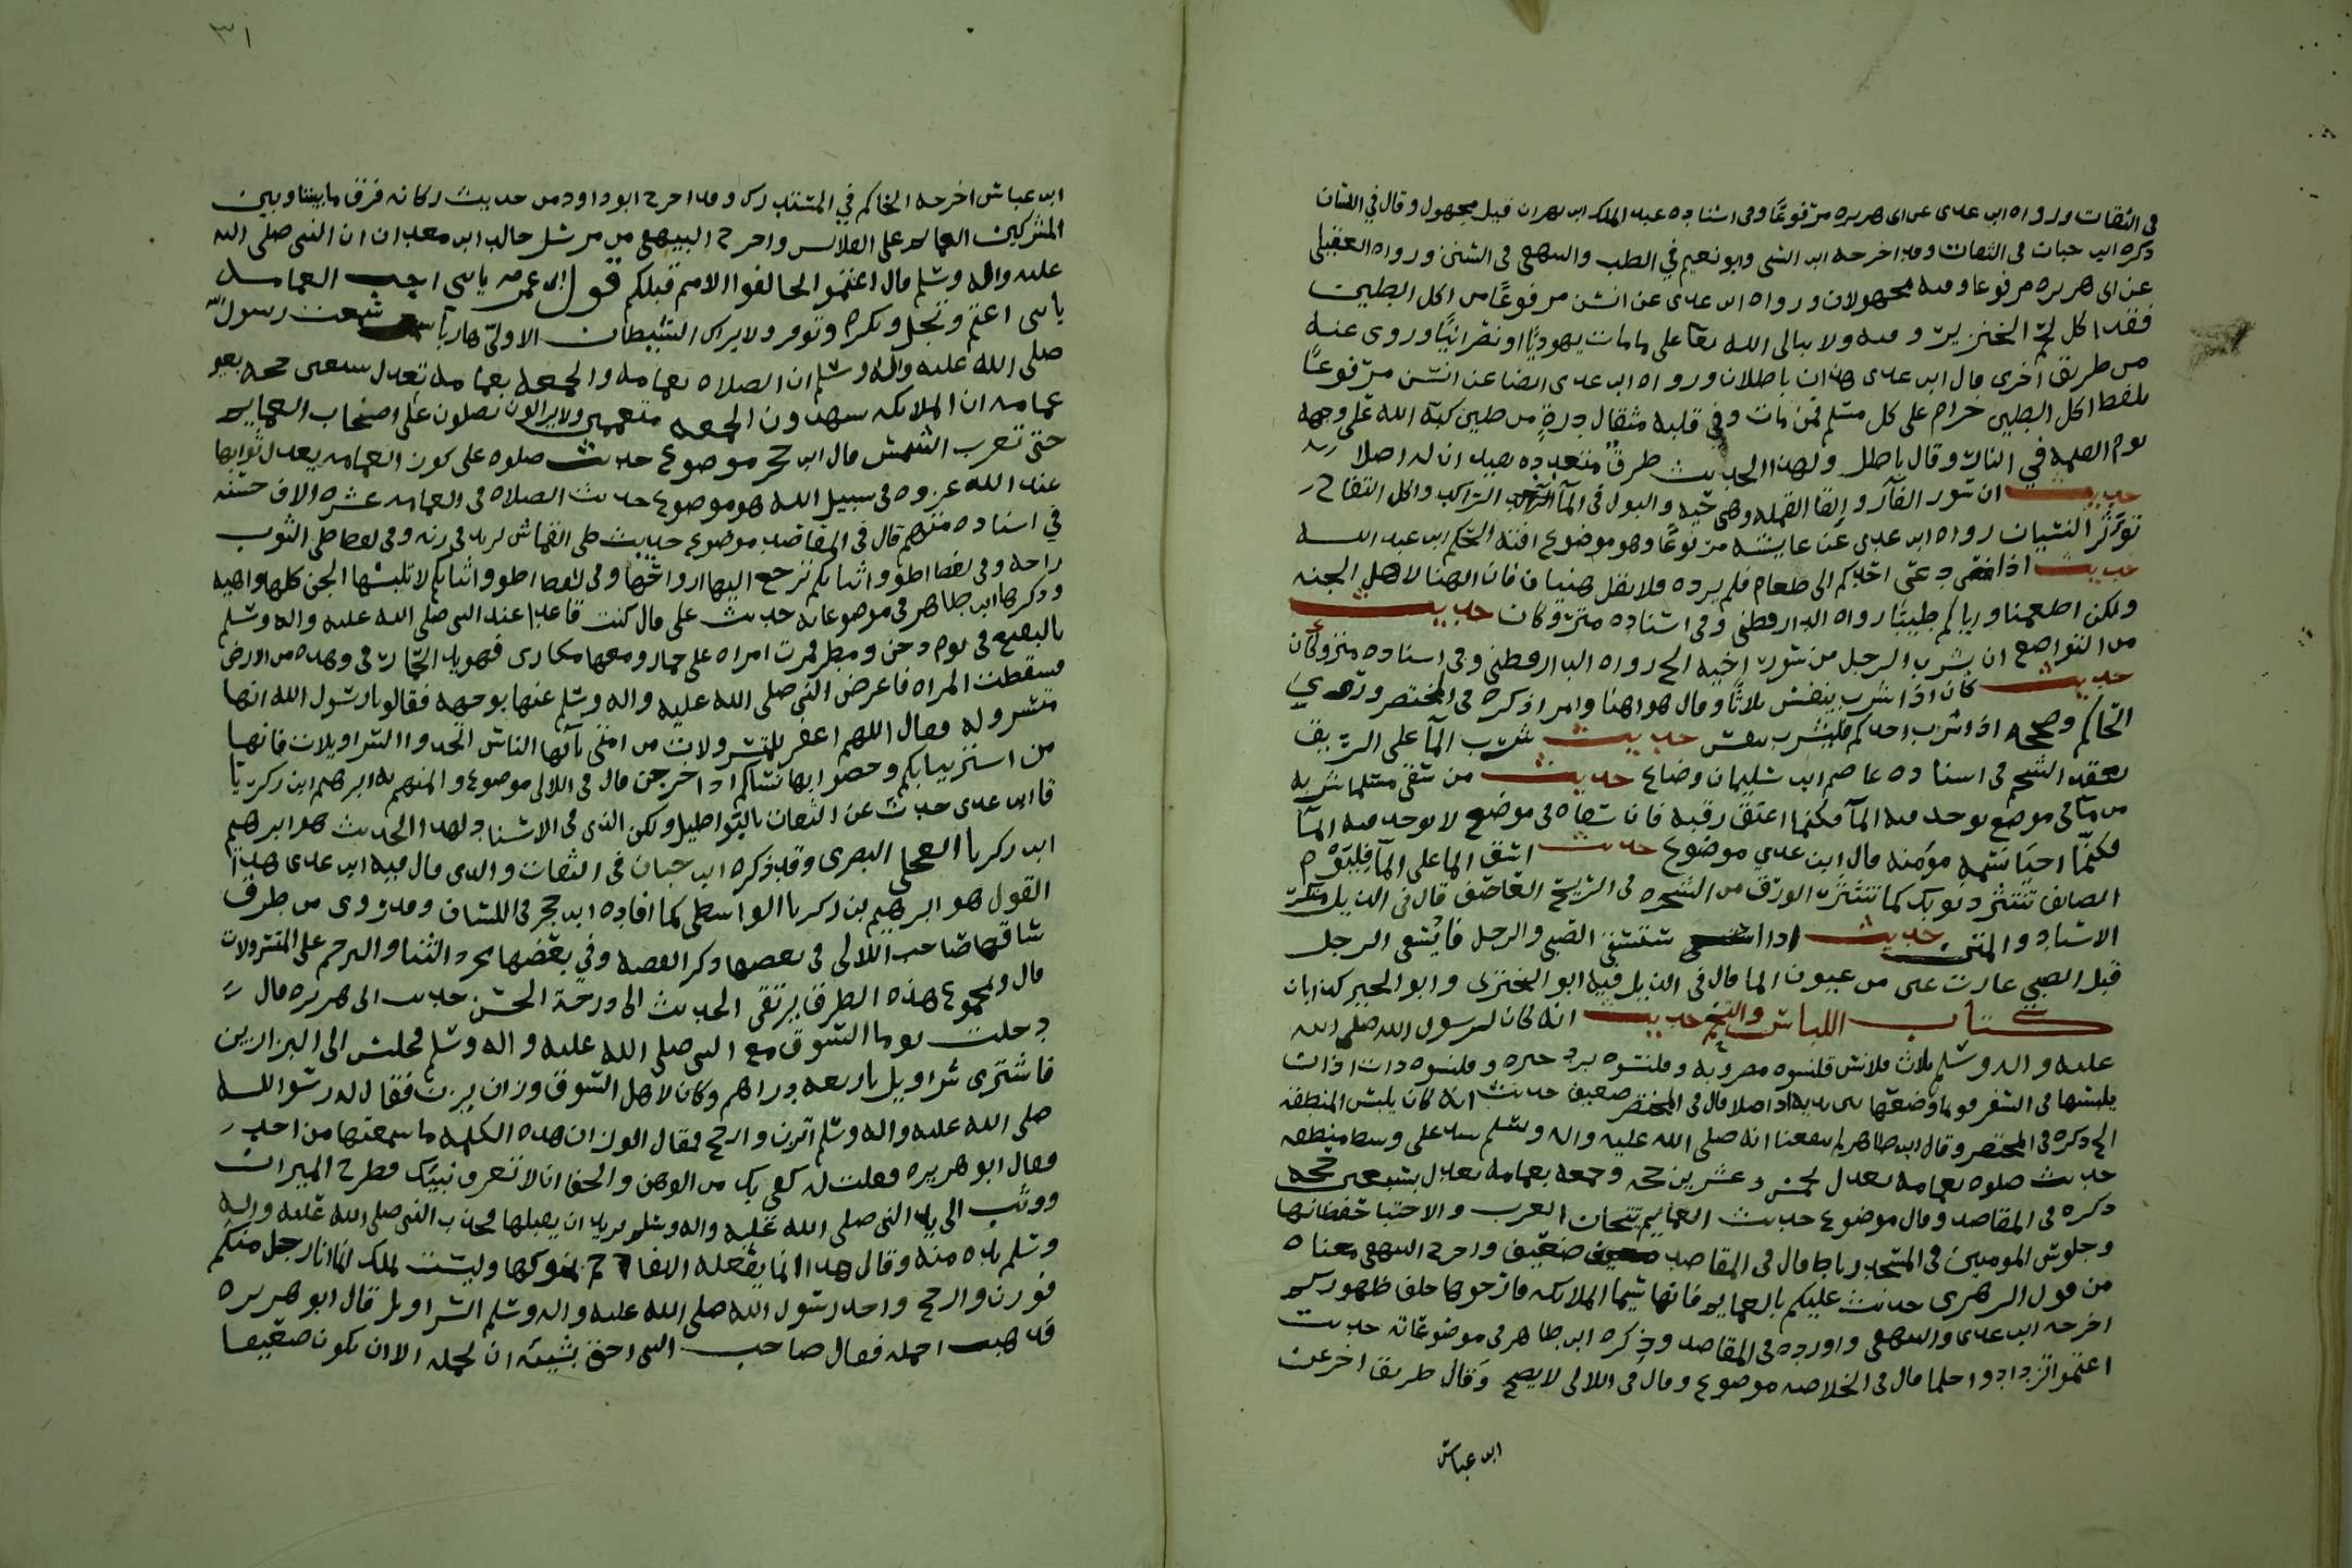 في الثقات ورواه ابن عدى عن ابى هريره مرفوعًا وفى اسناده عبد الملك ابن مهران قيل مجهول وقال في اللسان
ذكره ابن حبان فى الثقات وقد اخرجه ابن السنى وابو نعيم في الطب والبيهقى فى السنن ورواه العقيلى
عن ابى هريره مرفوعا وفيه مجهولان ورواه ابن عدى عن انس مرفوعًا من اكل الطين
فقد اكل لحم الخنزير وفيه ولا يبالى الله تعا على ما مات يهوديًا او نصرانيًا وروى عنه
من طريق اخرى قال ابن عدى هذان باطلان ورواه ابن عدى ايضا عن انس مرفوعًا
بلفظ اكل الطين حرام على كل مسلم فمن مات وفي قلبه مثقال ذرةٍ من طين كبه الله على وجهه
يوم القيمه في النار وقال باطل ولهذا الحديث طرق متعدده يفيد ان له اصلا
حديث ان سور الفأر والقا القمله وهى حيه والبول فى المآ الراكد واكل التفاح
تورث النسيان رواه ابن عدى عن عايشه مرفوعًا وهو موضوع افته الحكم ابن عبد الله
حديث اذا دعى احدكم الى طعام فلم يرده فلا يقل هنيا فان الهنا لاهل الجنه
ولكن اطعمنا واياكم طيبًا رواه الدارقطنى وفى اسناده متروكان حديث
من التواضع ان يشرب الرجل من سور اخيه الح رواه الدارقطنى وفى اسناده متروكان
حديث كان اذا شرب يتنفس ثلاثًا وقال هو اهنا وامرا ذكره فى المختصر وروى
الحاكم وصححه اذا شرب احدكم فليشرب بنفس حديث شرب المآ على الريق
يعقد الشحم فى اسناده عاصم ابن سليمان وضاع حديث من سقى مسلما شربه
من مآ فى موضع يوجد فيه المآ فكنما اعتق رقبه فان سقاه فى موضع لا يوجد فيه المآ
فكنما احيا نسمه مؤمنه قال ابن عدي موضوع حديث اسق الما على المآ فى اليوم
الصايف تنتثر ذنوبك كما تنتثر الورق من الشجره فى الريح العاصف قال فى الذيل منكر
الاسناد والمتن حديث اذا استسقى الصبى والرجل فاسقى الرجل
قبل الصبى غارت عين من عيون الما قال فى الذيل فيه ابو البختري وابو الخير كذابان
كتاب اللباس والتختم حديث انه كان لرسول الله صلى الله
عليه واله وسلم ثلاث قلانس قلنسوه مضربه وقلنسوه برد حبره وقلنسوه ذات اذان
يلبسها فى السفر فربما وضعها بين يديه اذا صلا قال فى المختصر ضعيف حديث انه كان يلبس المنطقه
الح ذكره فى المختصر وقال ابن طاهر لم يبلغنا انه صلى الله عليه واله وسلم شد على وسطه منطقه
حديث صلوه بعمامه تعدل لخمس وعشرين حجه وجمعه بعمامه تعدل بسبعين حجه
ذكره فى المقاصد وقال موضوع حديث العمايم تيجان العرب والاحتبا حيطانها
وجلوس المومنين فى المسجد رباط قال فى المقاصد ضعيف واخرج البيهقى معناه
من قول الزهرى حديث عليكم بالعمايم فانها سيما الملايكه فارخوها خلف ظهوركم
اخرجه ابن عدى والبيهقى واورده فى المقاصد وذكره ابن طاهر فى موضوعاته حديث
اعتموا تزدادوا حلما قال فى الخلاصه موضوع وقال فى اللالى لا يصح وقال طريقا اخر عن
ابن عباس
٣١
ابن عباس اخرجه الحاكم في المستدرك وقد اخرج ابو داود من حديث ركانه فرق ما بيننا وبين
المشركين العمايم على القلانس واخرج البيهقى من مرسل خالد ابن معدان ان النبى صلى الله
عليه واله وسلم قال اعتموا خالفوا الامم قبلكم قول ابن عمر يابنى احب العمامه
يابنى اعتم وتجل وتكرم وتوقر ولا يراك الشيطان الا ولى هاربا سمعت رسول الله
صلى الله عليه واله وسلم ان الصلاه بعمامه والجمعه بعمامه تعدل سبعين جمعه بغير
عمامه ان الملايكه يشهدون الجمعه متعممين ولا يزالون يصلون على اصحاب العمايم
حتى تغرب الشمس قال ابن حجر موضوع حديث صلوه على كور العمامه يعدل ثوابها
عند الله غزوه فى سبيل الله هو موضوع حديث الصلاه فى العمامه عشره الاف حسنه
في اسناده متهم قال فى المقاصد موضوع حديث طى القماش يزيد فى زنه وفى لفظ طى الثوب
راحه وفى لفظ اطووا ثيابكم ترجع اليها ارواحها وفى لفظ اطووا ثيابكم لا تلبسها الجن كلها واهيه
وذكرها ابن طاهر فى موضوعاته حديث على قال كنت قاعدا عند النبى صلى الله عليه واله وسلم
بالبقيع فى يوم دجن ومطر فمرت امراه على حمار ومعها مكارى فهويد الحمار فى وهده من الارض
فسقطت المراه فاعرض النبى صلى الله عليه واله وسلم عنها بوجهه فقالو يارسول الله انها
متسروله فقال اللهم اغفر للمتسرولات من امتى يآيها الناس اتخدوا السراويلات فانها
من استر ثيابكم وحصنوا بها نساكم اذا خرجن قال فى اللالى موضوع والمتهم به ابرهيم ابن زكريا
قا ابن عدى حدث عن الثقات بالبواطيل ولكن الذى فى الاسناد لهذا الحديث هو ابرهيم
ابن زكريا العجلى البصرى وقد ذكره ابن حبان فى الثقات والذى قال فيه ابن عدى هذا
القول هو ابرهيم بن زكريا الواسطى كما افاده ابن حجر فى اللسان وقد روى من طرق
ساقها صاحب اللالى فى بعضها ذكر القصه وفي بعضها مجرد الثنا والترحم على المتسرولات
قال وبمجموع هذه الطرق يرتقى الحديث الى درجة الحسن حديث ابى هريره قال
دخلت يوما السوق مع النبى صلى الله عليه واله وسلم فجلس الى البزازين
فاشترى سراويل باربعه دراهم وكان لاهل السوق وزان يزن فقال له رسول الله
صلى الله عليه واله وسلم اتزن وارجح فقال الوزان ان هذه الكلمه ما سمعتها من احد
فقال ابو هريره فقلت له كفى بك من الوهن والجفا ان لا تعرف نبيك فطرح الميزان
ووثب الى يد النبى صلى الله عليه واله وسلم يريد ان يقبلها فجذب النبى صلى الله عليه واله
وسلم يده منه وقال هذا انما يفعله الاعاجم بملوكها ولست بملك انما انا رجل منكم
فوزن وارجح واخذ رسول الله صلى الله عليه واله وسلم السراويل قال ابو هريره
فذهبت احمله فقال صاحب الشى احق بشيئه ان يحمله الا ان يكون ضعيفا